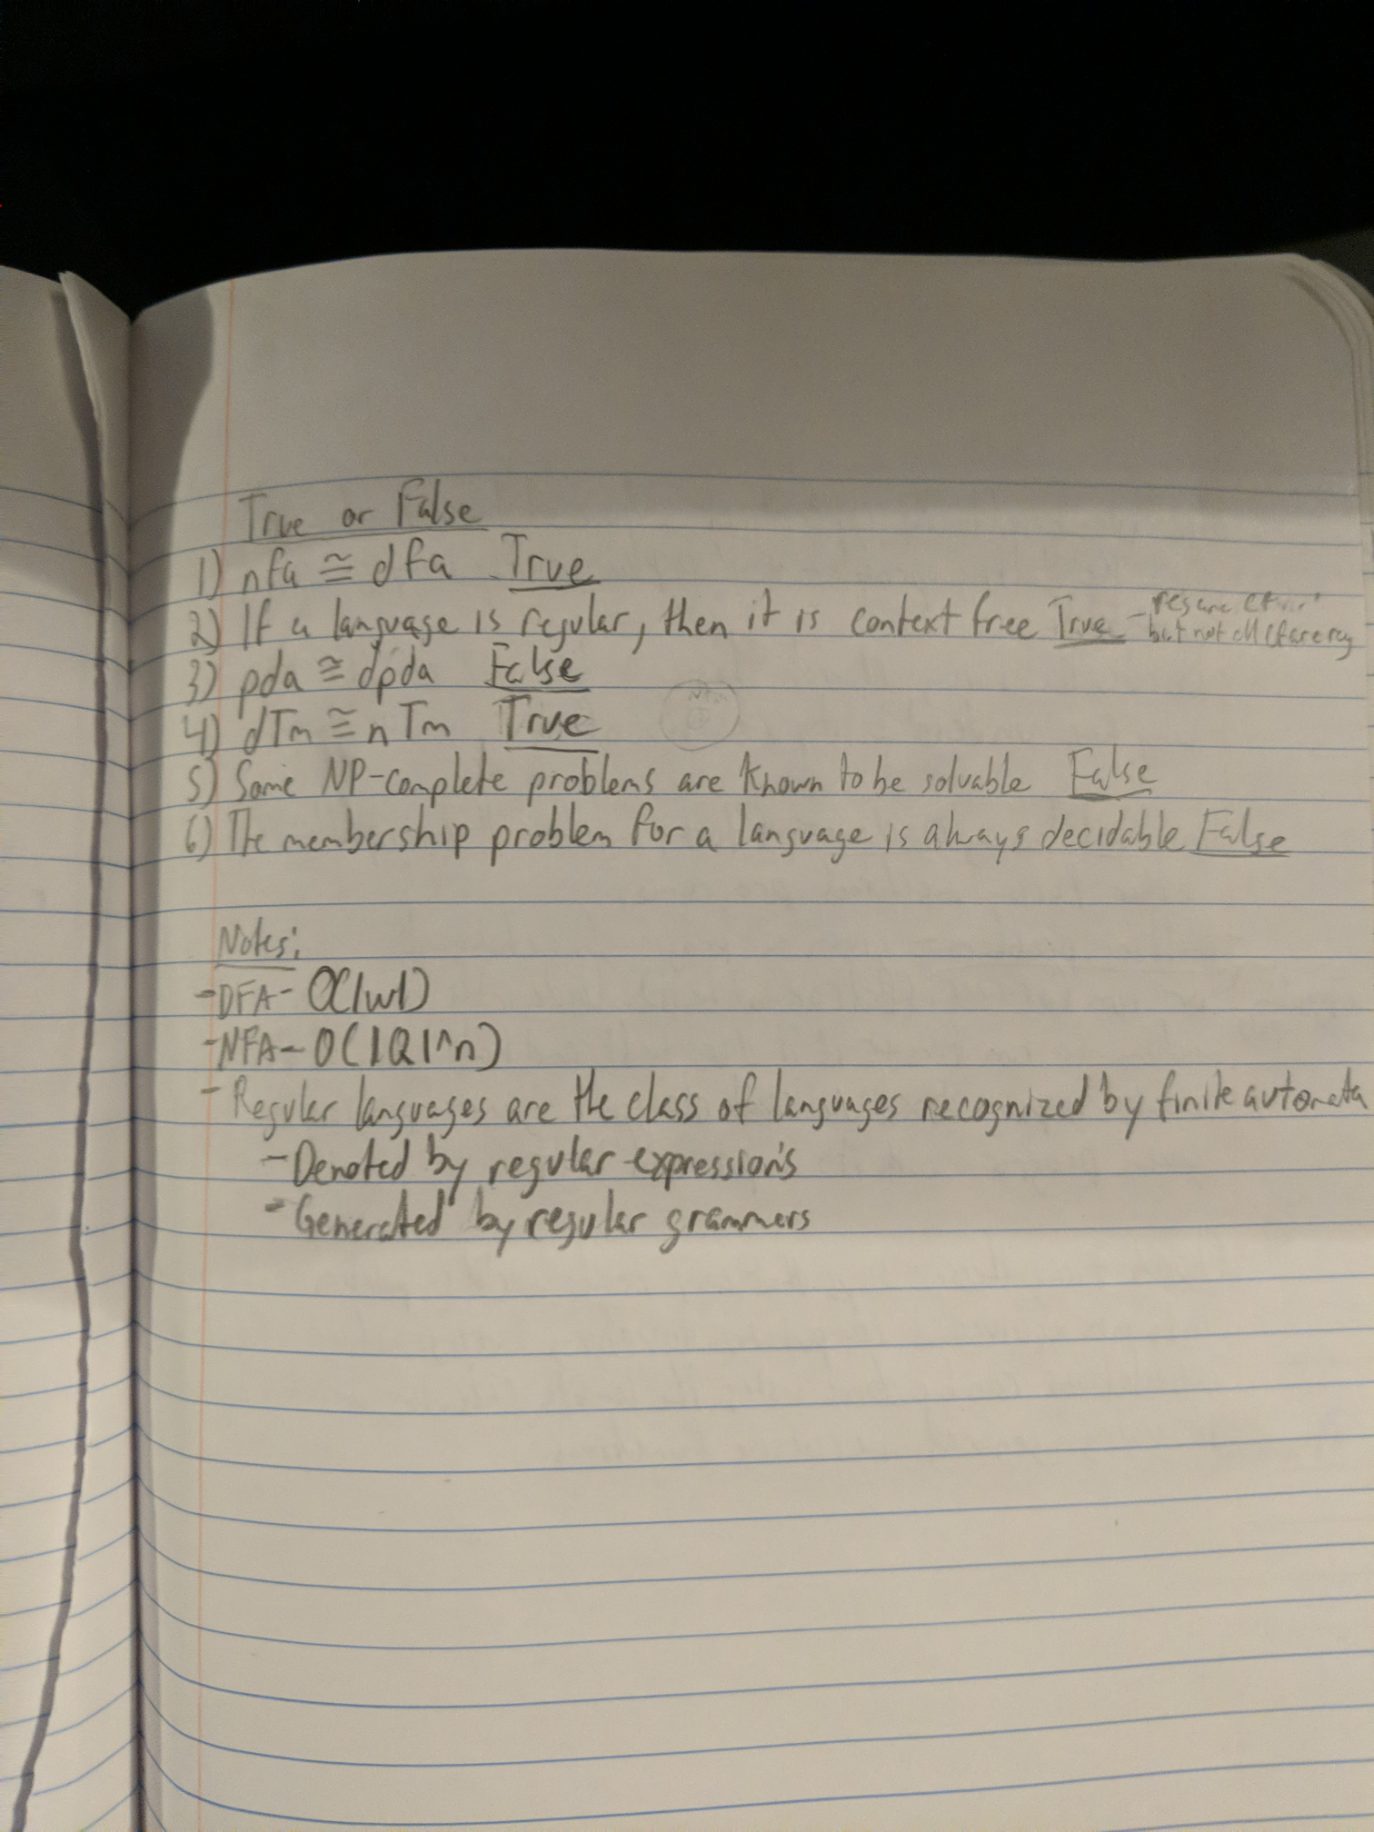 True or False
1) nfa ≅ dfa True
2) If a language is regular, then it is context free True - reg are
but not all cf are reg
3) pda ≅ dpda False
4) dTm ≅ nTm True
5) Some NP-complete problems are known to be solvable False
6) The membership problem for a language is always decidable False
Notes:
-DFA- O(|w|)
-NFA- O(|Q|^n)
- Regular languages are the class of languages recognized by finite automata
- Denoted by regular expressions
- Generated by regular grammers